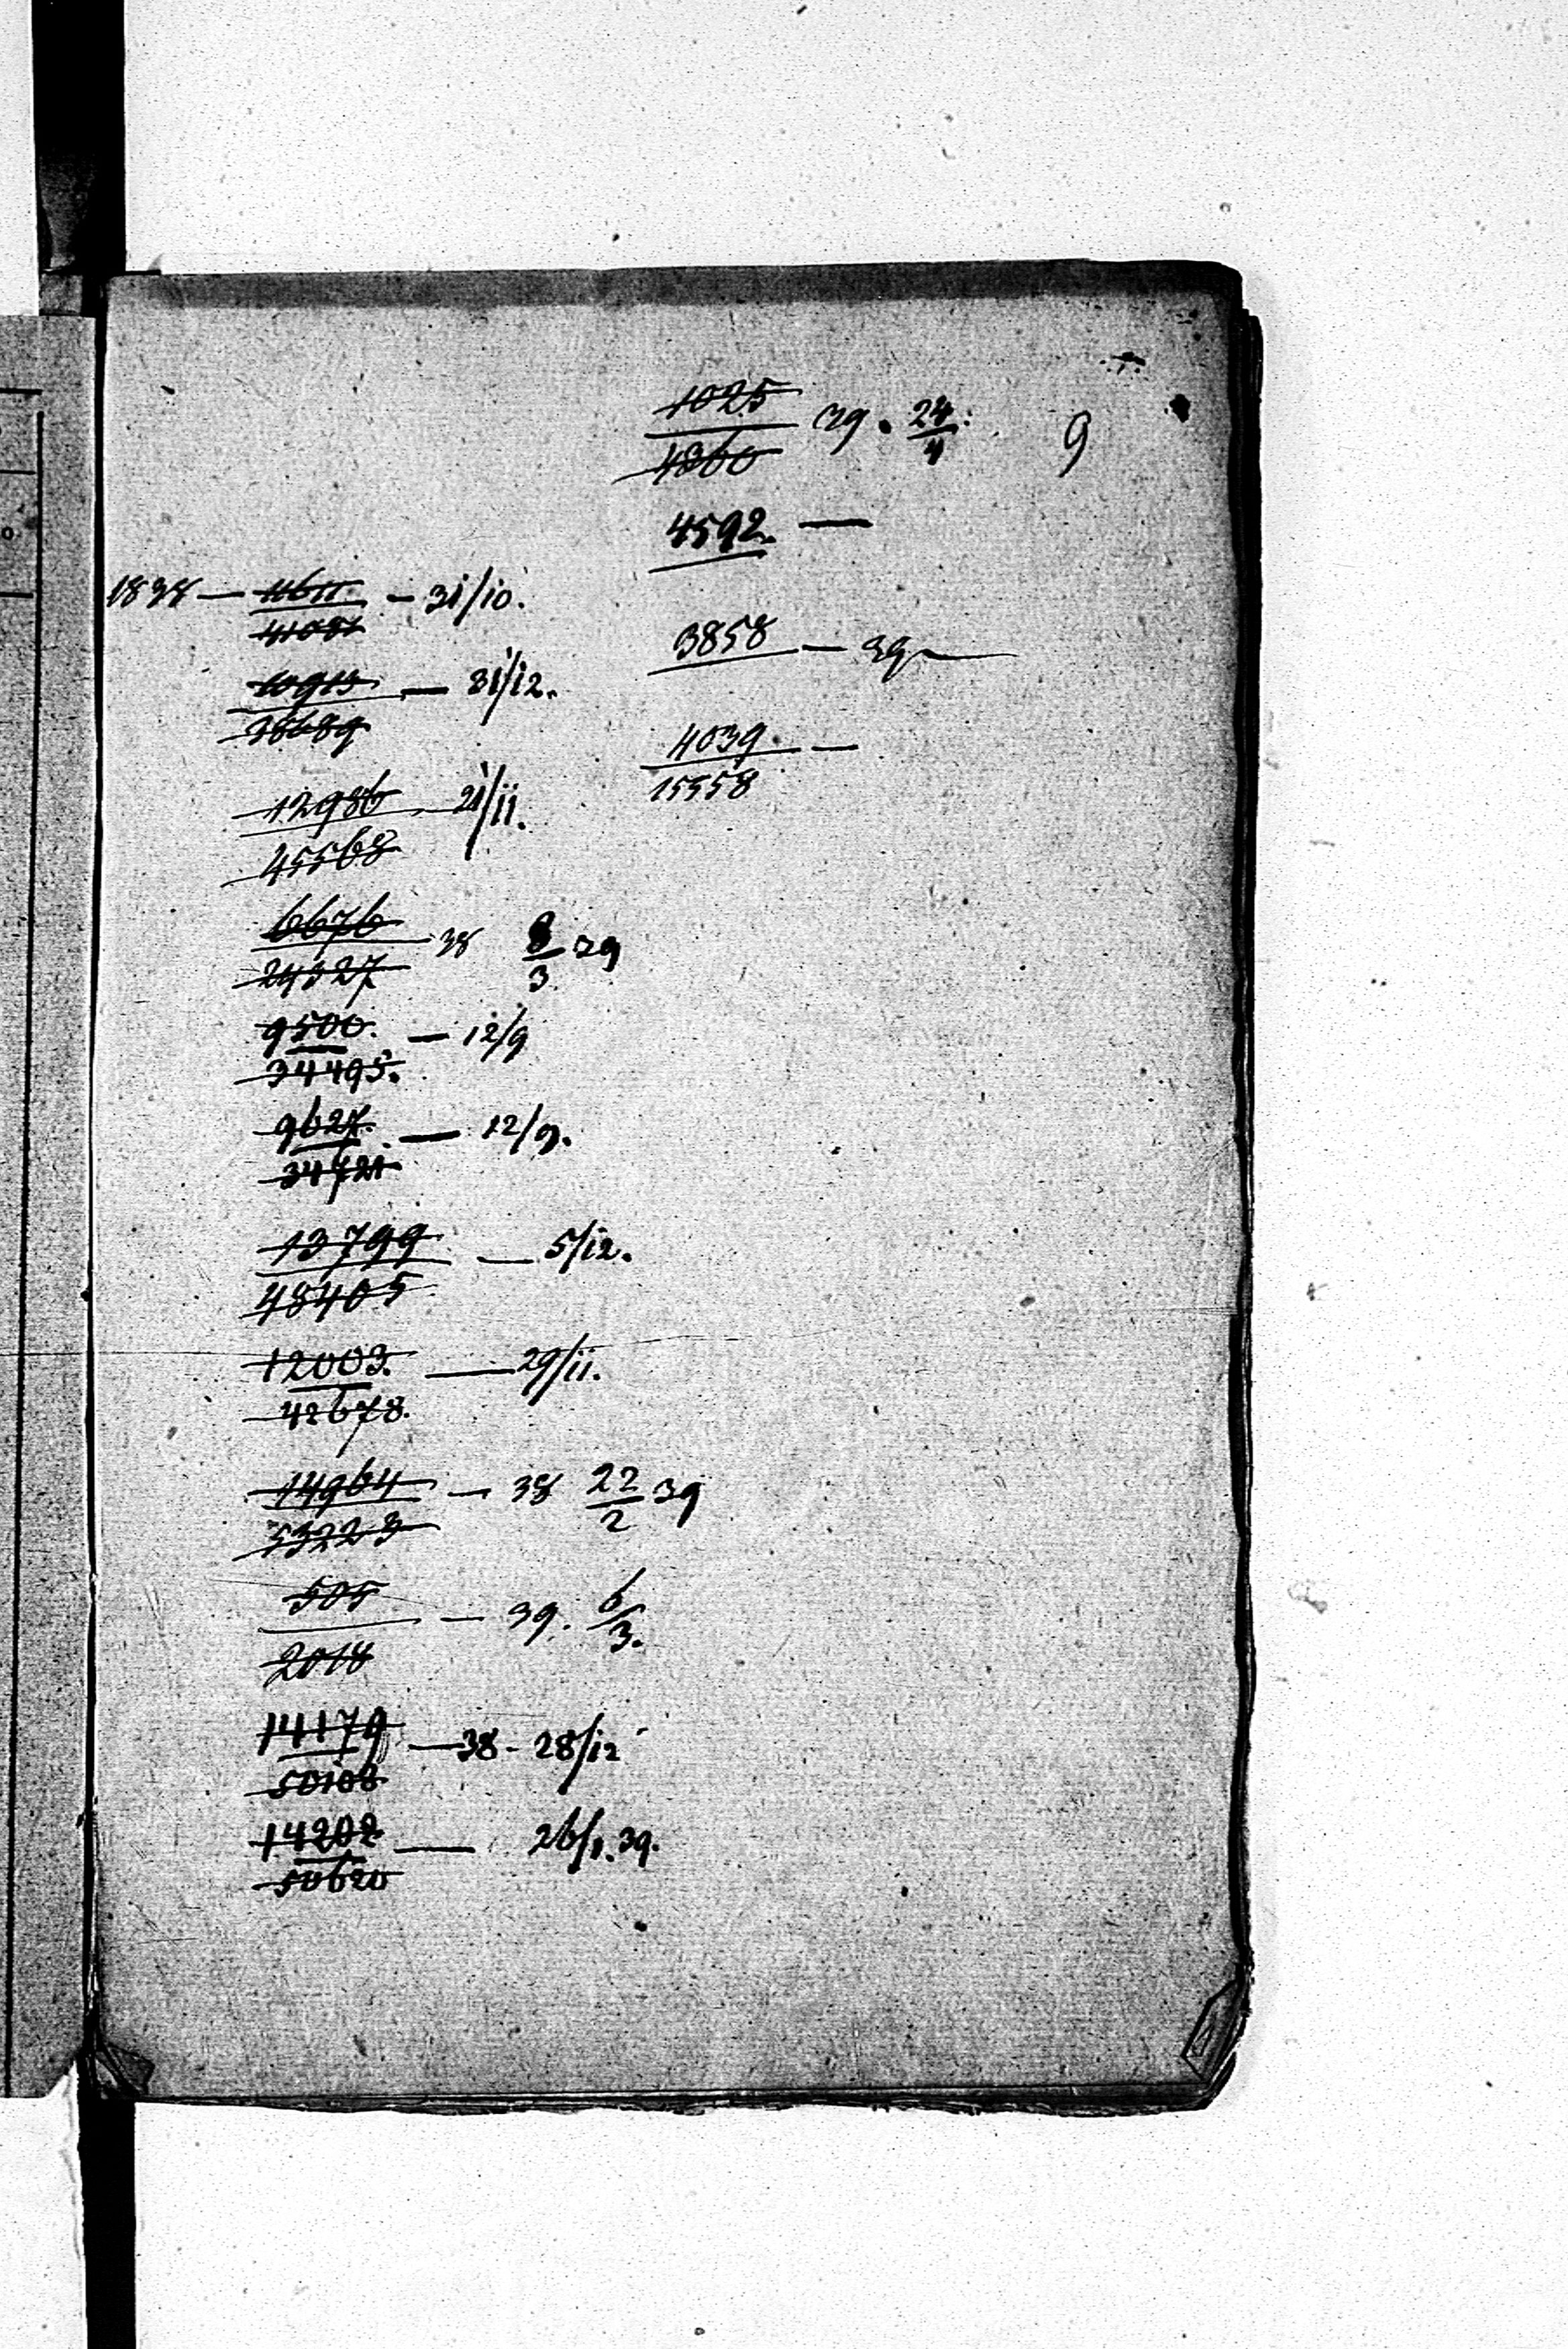 1025
39 . 24/4.
4360
9
4592. —
3858 — 39 —
4039. —
15358
1838 — 11611. — 31/10.
41081
10913 — 31/12.
38689
12986 — 21/11.
45568
6676 38 8/3 39
24327
9500. — 12/9
34495.
9627. — 12/9.
34721
13799 — 5/12.
48405
12003. — 29/11.
42678.
14964 — 38 22/2 39
53223
505 — 39. 6/3.
2018
14179 — 38 - 28/12
50108
14202 — 26/1. 39.
50620